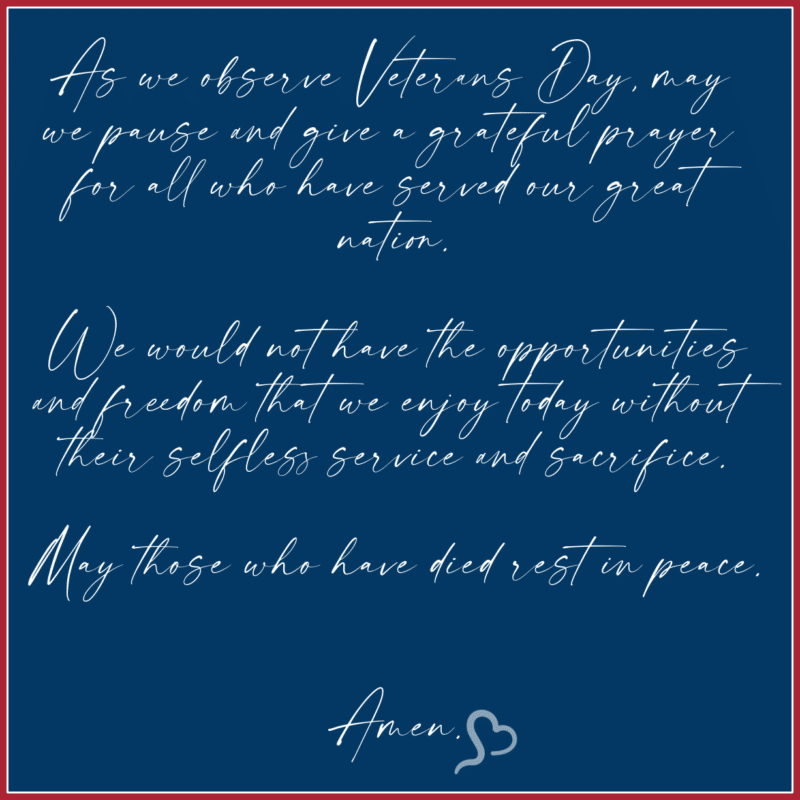 As we observe Veterans Day, may
we pause and give a grateful prayer
for all who have served our great
nation.
We would not have the opportunities
and freedom that we enjoy today without
their selfless service and sacrifice.
May those who have died rest in peace.
Amen.